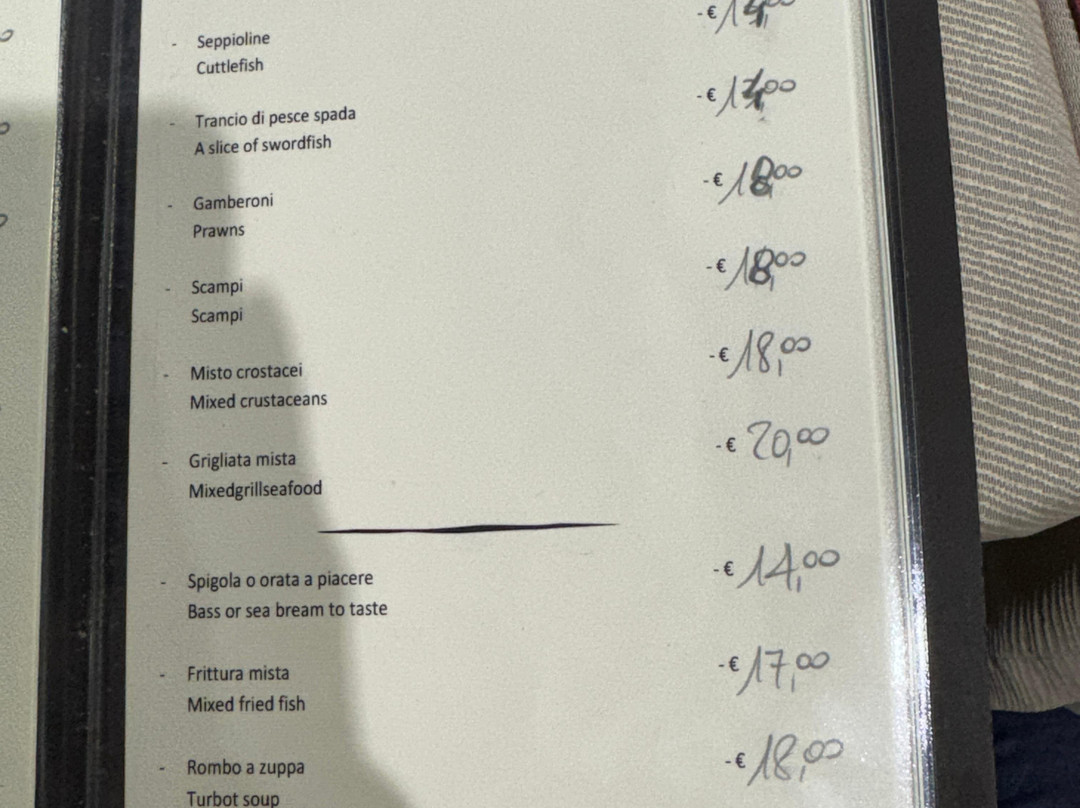 - Seppioline -€
Cuttlefish
- Trancio di pesce spada -€
A slice of swordfish
- Gamberoni -€ 18,00
Prawns
- Scampi -€ 18,00
Scampi
- Misto crostacei -€ 18,00
Mixed crustaceans
- Grigliata mista -€ 20,00
Mixedgrillseafood
- Spigola o orata a piacere -€ 14,00
Bass or sea bream to taste
- Frittura mista -€ 17,00
Mixed fried fish
- Rombo a zuppa -€ 18,00
Turbot soup